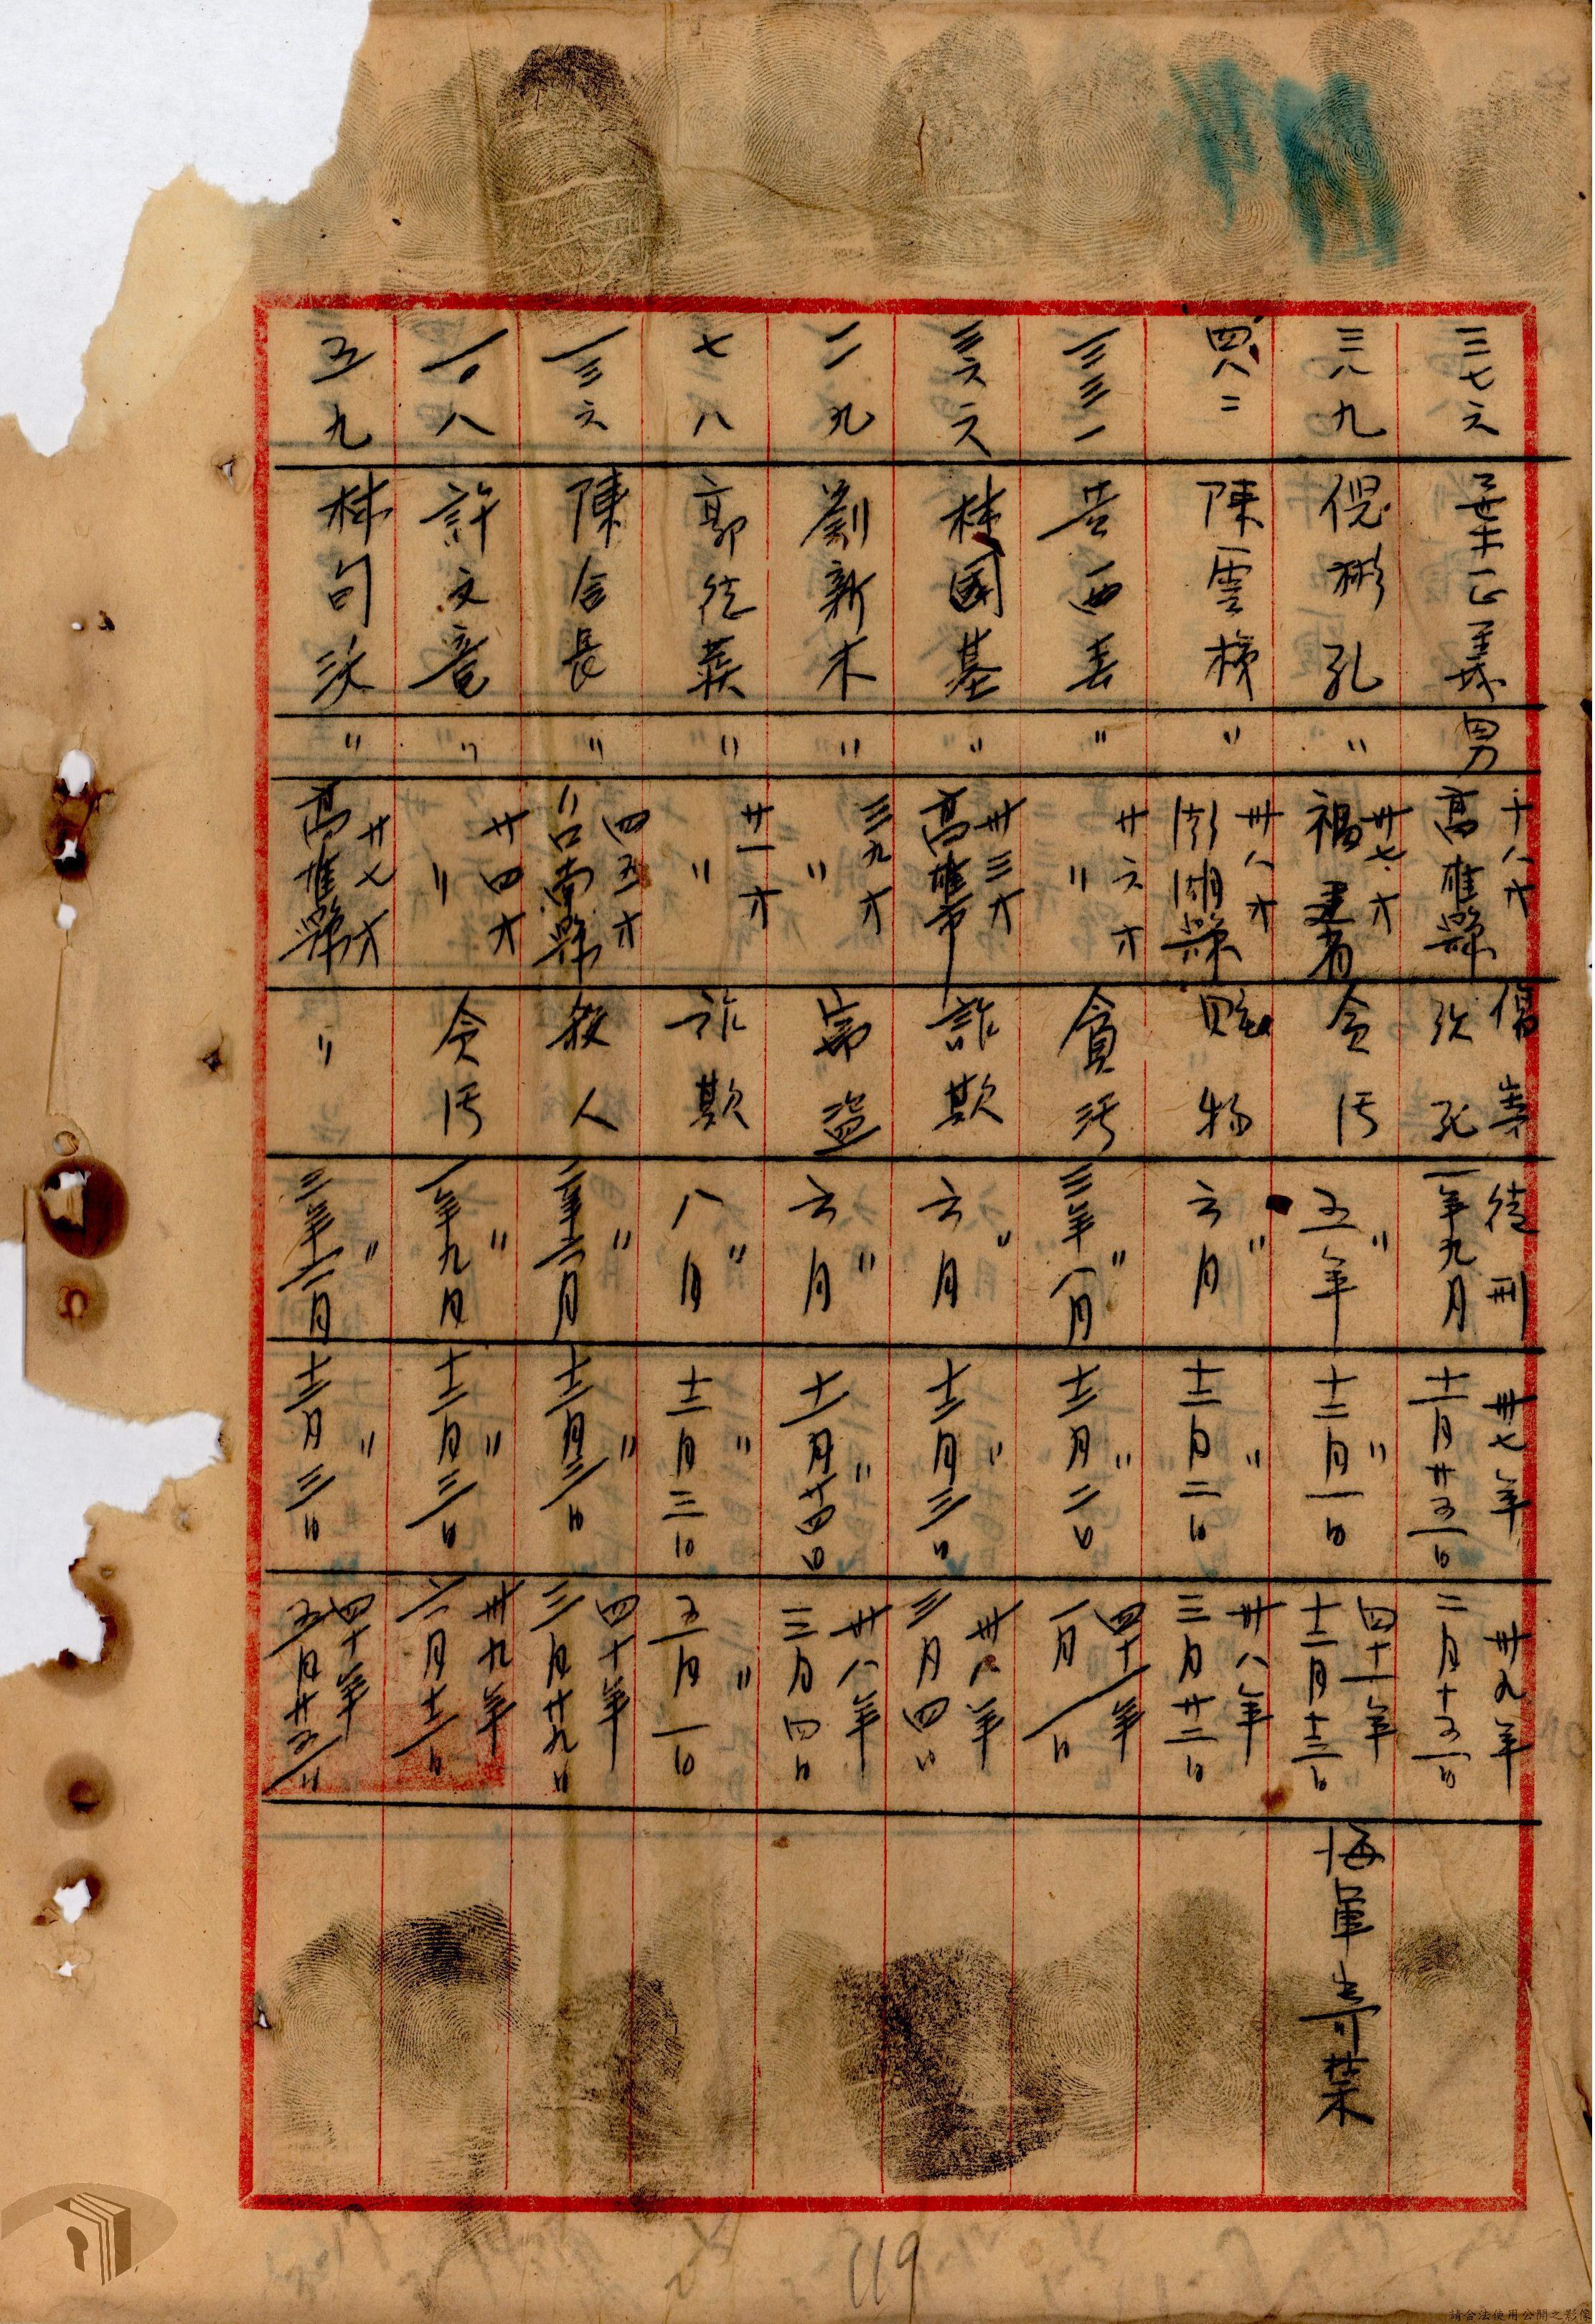 三七六 葉正義 男 十八才 高雄縣 傷害致死 徒刑一年九月 卅七年十一月廿五日 卅九年二月十五日
三八九 倪彬孔 〃 卅七才 福建省 貪污 〃五年 〃十二月一日 四十一年十二月十三日 海軍寄禁
四八二 陳雲梯 〃 卅八才 澎湖縣 贓物 〃六月 〃十二月二日 卅八年三月廿二日
三三一 西 〃 廿六才 〃 貪污 〃三年一月 〃十二月二日 四十一年一月一日
三六六 林國基 〃 卅三才 高雄市 詐欺 〃六月 〃十二月三日 卅八年三月四日
二一九 劉新木 〃 三九才 〃 竊盜 〃六月 〃十一月廿四日 卅八年三月四日
七八 郭 〃 廿一才 〃 詐欺 〃八月 〃十二月三日 〃五月一日
一三六 陳合長 〃 四五才 台南縣 殺人 〃二年六月 〃十二月三日 四十年三月廿九日
一〇八 許文章 〃 廿四才 〃 貪污 〃一年九月 〃十二月三日 卅九年二月十二日
五九 林句 〃 廿七才 高雄縣 〃 〃二年十一月 〃十二月三日 四十年五月廿五日
119
請合法使用公開之影像